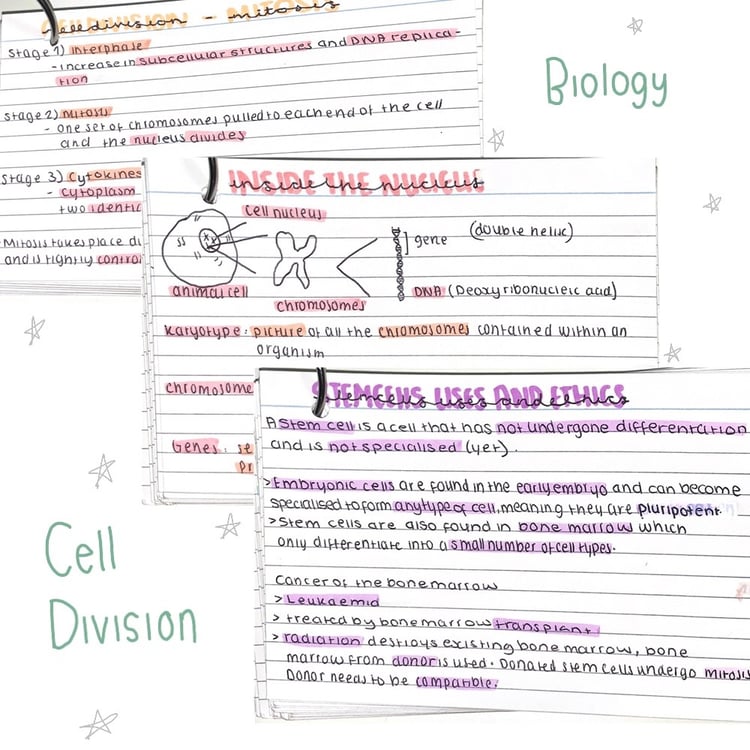 Cell division - mitosis
Stage 1) Interphase
- increase in subcellular structures and DNA replica-
tion
Stage 2) Mitosis
- one set of chromosomes pulled to each end of the cell
and the nucleus divides
Stage 3) Cytokines
- cytoplasm
two identic
Mitosis takes place di
and is tightly control
Biology
INSIDE THE NUCLEUS
inside the nucleus
cell nucleus
gene
(double helix)
animal cell
chromosomes
DNA (Deoxyribonucleic acid)
Karyotype: picture of all the chromosomes contained within an
organism
chromosome
Genes: se
pr
STEMCELLS USES AND ETHICS
stemcells uses and ethics
A Stem cell is a cell that has not undergone differentation
and is not specialised (yet).
>Embryonic cells are found in the early embryo and can become
specialised to form any type of cell, meaning they are pluripotent.
>Stem cells are also found in bone marrow which
only differentiate into a small number of cell types.
Cancer of the bone marrow
>Leukaemia
> treated by bone marrow transplant
> radiation destroys existing bone marrow, bone
marrow from donor is used. Donated stem cells undergo mitosis
Donor needs to be compatible.
Cell
Division